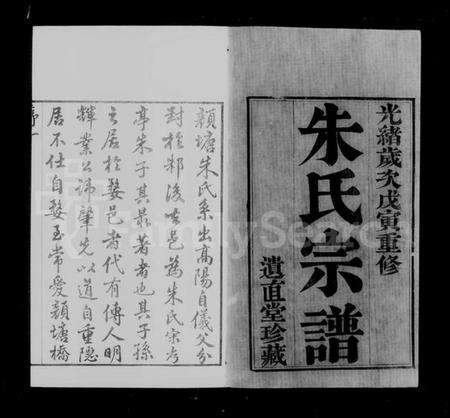 光緒歲次戊寅重修
朱氏宗譜
遺直堂珍藏
頴塘朱氏系出高陽自儀父分
封於邾後世邑為朱氏宗考
亭朱子其最著者也其子孫
之居於婺邑者代有傳人明
輝業公諱肇先以道自重隱
居不仕自婺至常愛頴塘橋
序一
FamilySearch